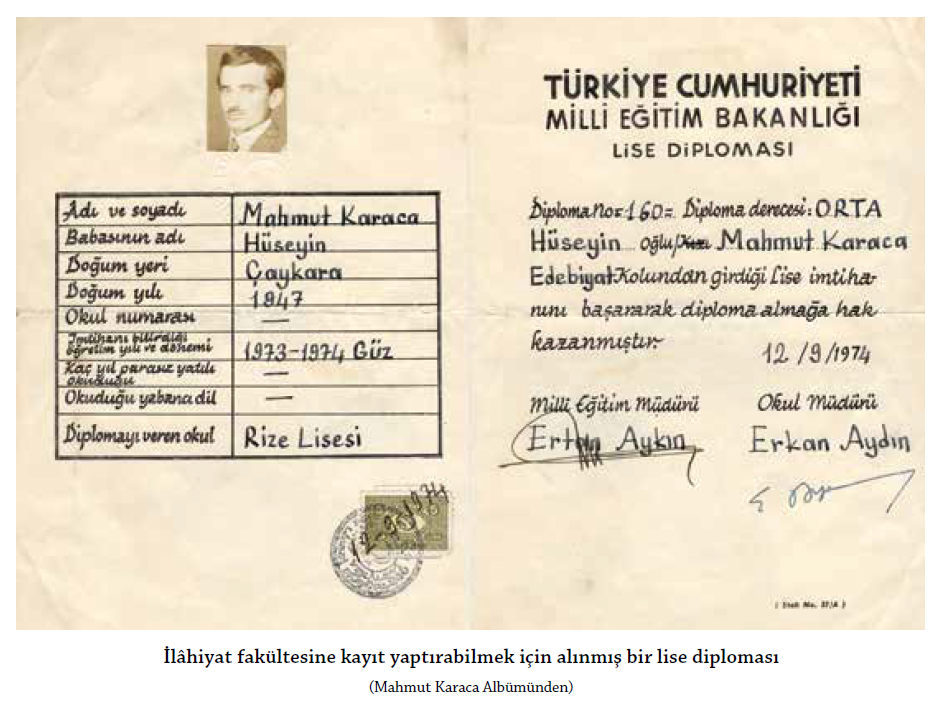 Adı ve soyadı Mahmut Karaca
Babasının adı Hüseyin
Doğum yeri Çaykara
Doğum yılı 1947
Okul numarası —
İmtihanı bitirdiği
öğretim yılı ve dönemi 1973-1974 Güz
Kaç yıl parasız yatılı
okuduğu —
Okuduğu yabancı dil —
Diplomayı veren okul Rize Lisesi
12-9-1974
TÜRKİYE CUMHURİYETİ
MİLLİ EĞİTİM BAKANLIĞI
LİSE DİPLOMASI
Diploma no=160= Diploma derecesi: ORTA
Hüseyin oğlu/kızı Mahmut Karaca
Edebiyat Kolundan girdiği Lise imtiha-
nını başararak diploma almağa hak
kazanmıştır.
12/9/1974
Milli Eğitim Müdürü Okul Müdürü
Ertan Aykın Erkan Aydın
( Stok No. 37/A )
İlâhiyat fakültesine kayıt yaptırabilmek için alınmış bir lise diploması
(Mahmut Karaca Albümünden)